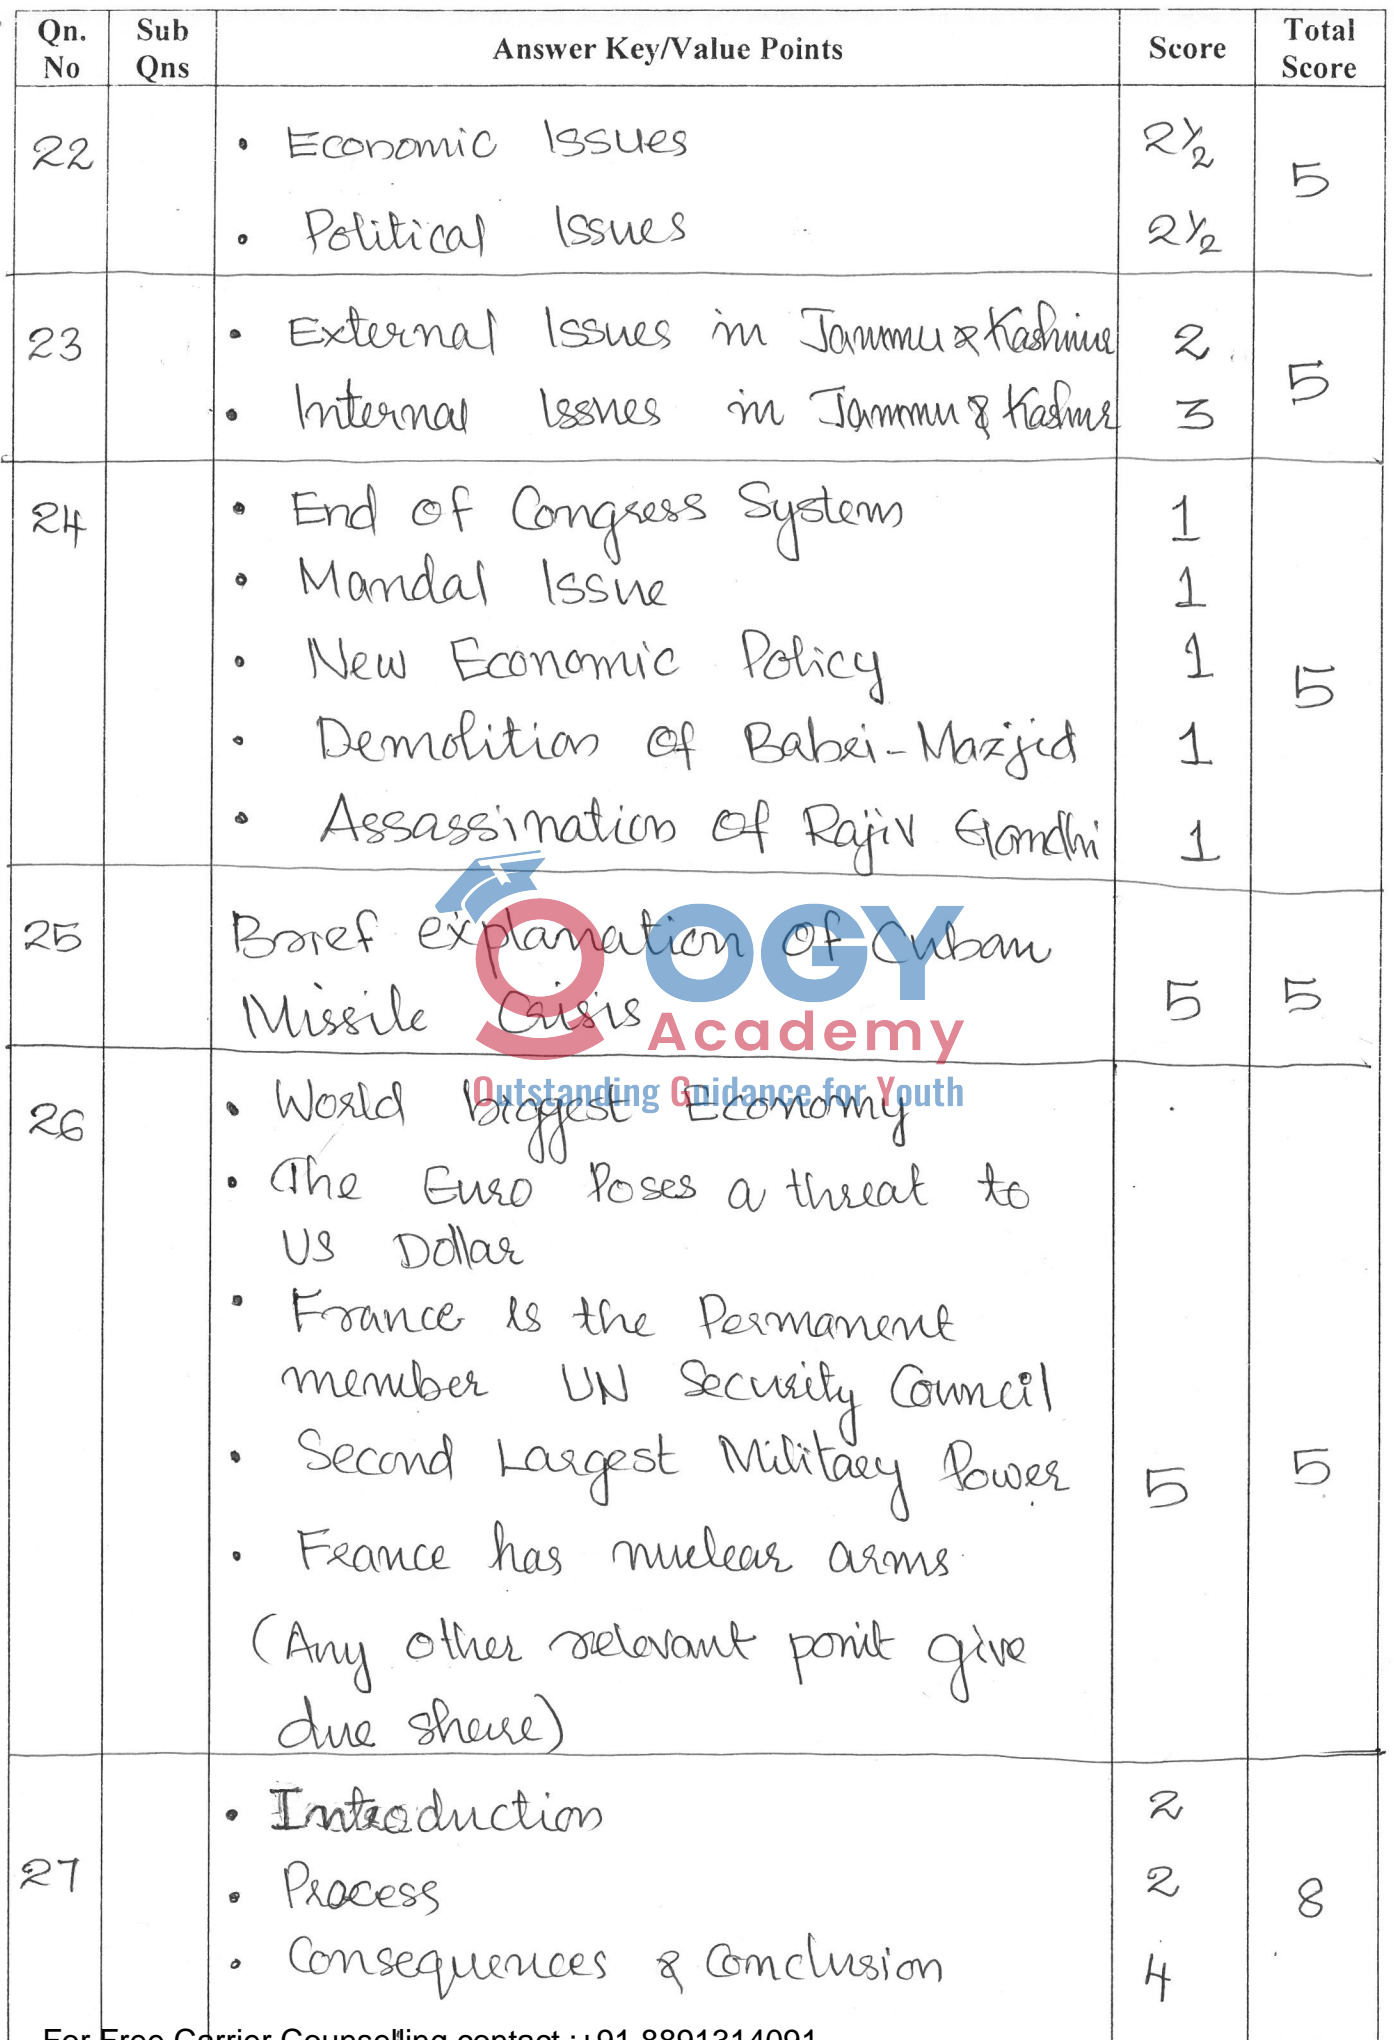 Qn. No Sub Qns Answer Key/Value Points Score Total Score
22 • Economic Issues 2½ 5
• Political Issues 2½
23 • External Issues in Jammu & Kashmir 2 5
• Internal Issues in Jammu & Kashmr 3
24 • End of Congress System 1
• Mandal Issue 1
• New Economic Policy 1 5
• Demolition of Babri-Mazjid 1
• Assassination of Rajiv Gandhi 1
25 Brief explanation of Cuban
Missile Crisis 5 5
OOGY
Academy
Outstanding Guidance for Youth
26 • World biggest Economy
• The Euro Poses a threat to
US Dollar
• France is the Permanent
member UN Security Council
• Second Largest Military Power 5 5
• France has nuclear arms
(Any other relevant ponit give
due shere)
• Introduction 2
27 • Process 2 8
• Consequences & Conclusion 4
For Free Carrier Counselling contact :+91 8891314091